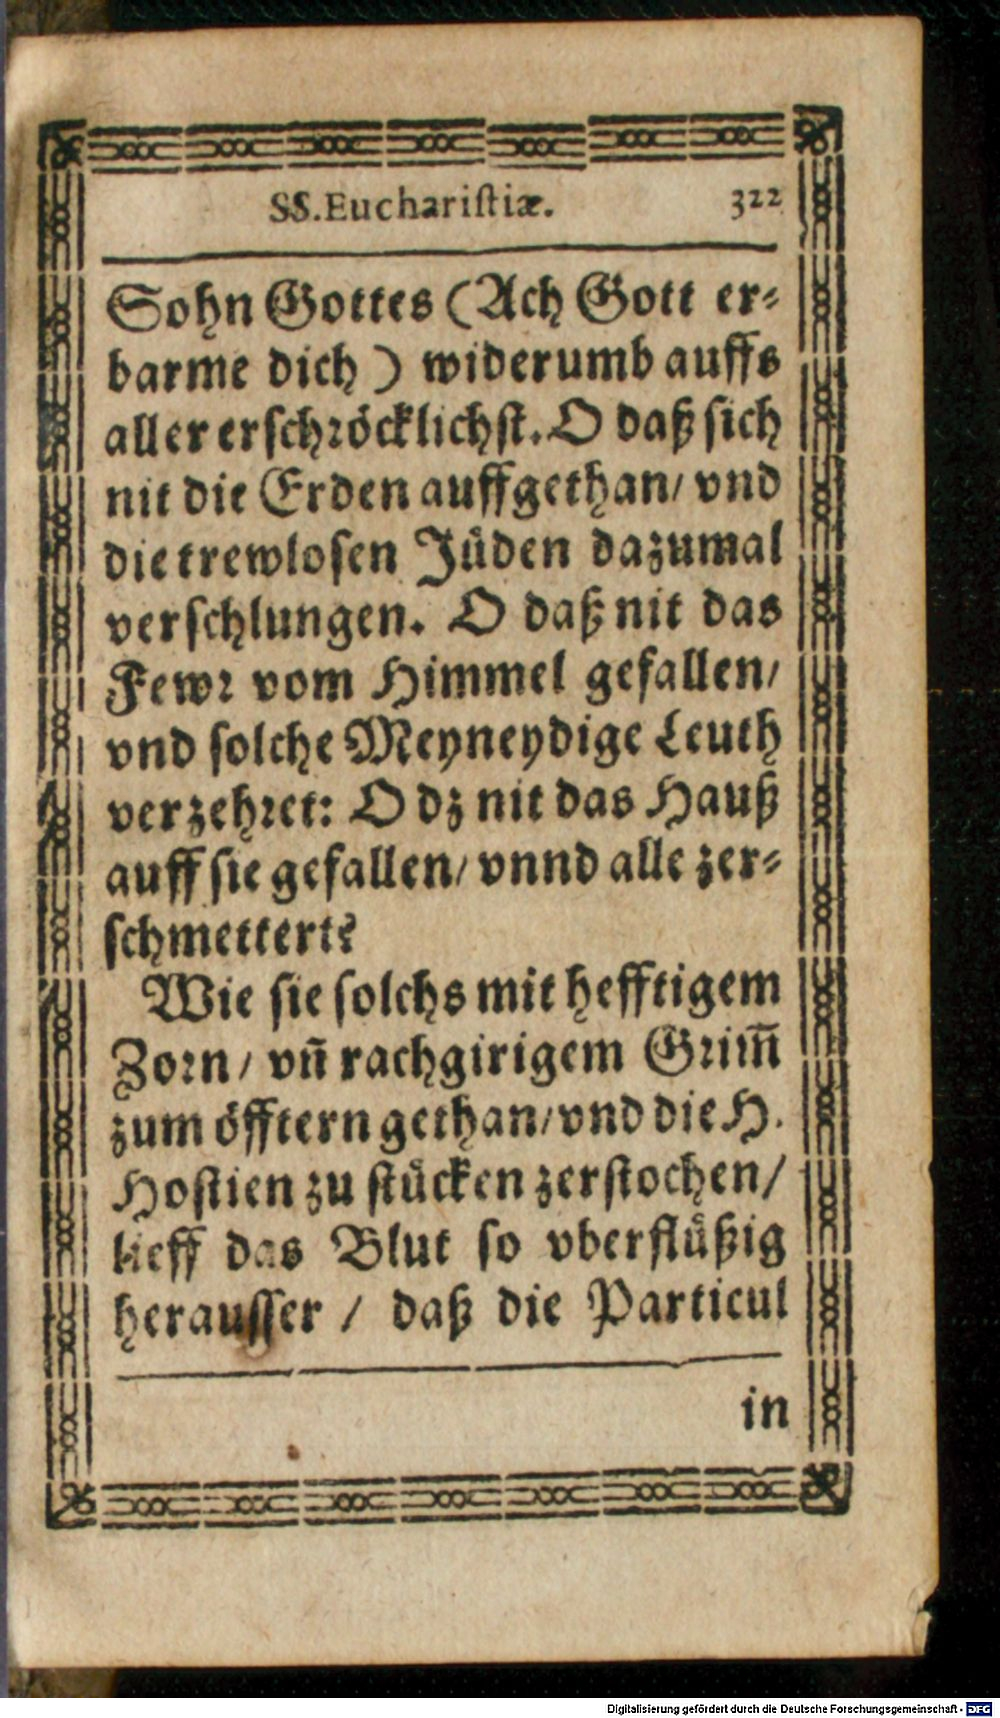 SS.Euchariſtiæ. 322
Sohn Gottes (Ach Gott er-
barme dich) widerumb auffs
aller erſchröcklichſt. O daß ſich
nit die Erden auffgethan/ vnd
die trewloſen Jüden dazumal
verſchlungen. O daß nit das
Fewr vom Himmel gefallen/
vnd ſolche Meyneydige Leuth
verzehret: O dz nit das Hauß
auff ſie gefallen/ vnnd alle zer-
ſchmettert?
Wie ſie ſolchs mit hefftigem
Zorn/ vñ rachgirigem Grim̃
zum öfftern gethan/ vnd die H.
Hoſtien zu ſtücken zerſtochen/
lieff das Blut ſo vberflüßig
herauſſer/ daß die Particul
in
Digitalisierung gefördert durch die Deutsche Forschungsgemeinschaft - DFG